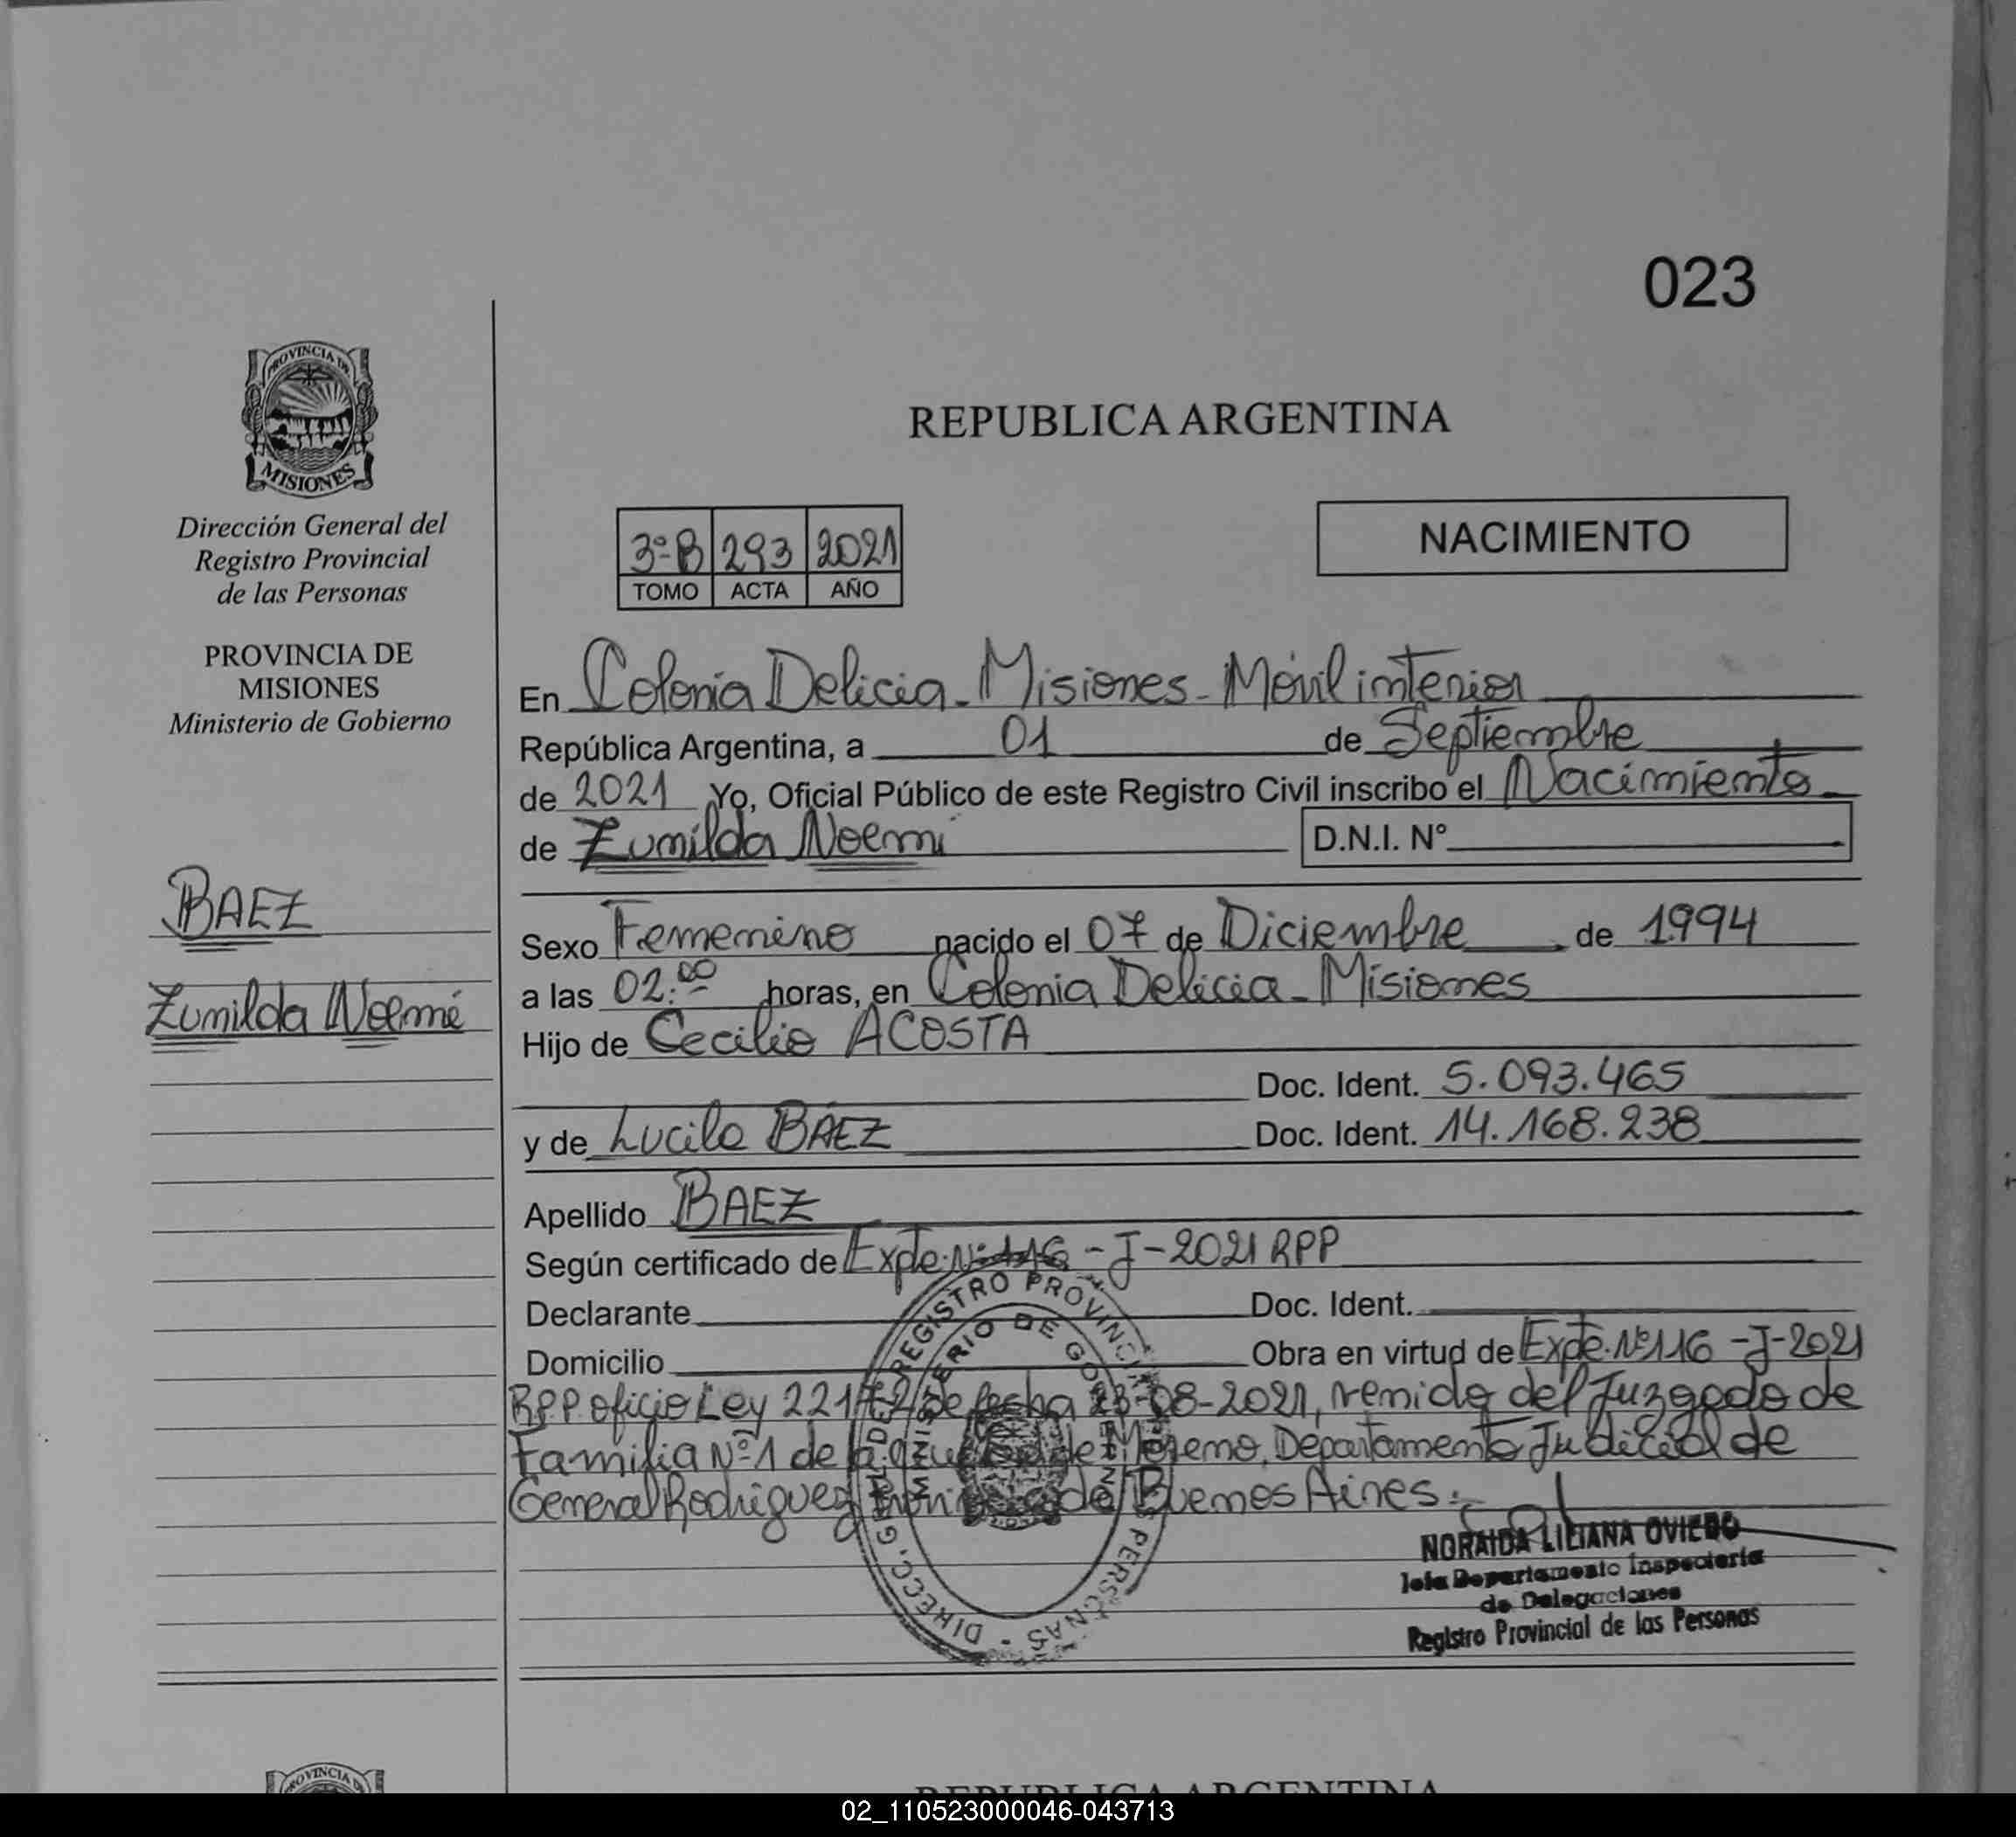 023
PROVINCIA DE
MISIONES
Dirección General del
Registro Provincial
de las Personas
PROVINCIA DE
MISIONES
Ministerio de Gobierno
BAEZ
Zunilda Noemí
REPUBLICA ARGENTINA
3º B 293 2021
TOMO ACTA AÑO
NACIMIENTO
En Colonia Delicia - Misiones - Móvil interior
República Argentina, a 01 de Septiembre
de 2021 Yo, Oficial Público de este Registro Civil inscribo el Nacimiento
de Zunilda Noemi D.N.I. Nº
Sexo Femenino nacido el 07 de Diciembre de 1994
a las 02:00 horas, en Colonia Delicia - Misiones
Hijo de Cecilio ACOSTA
Doc. Ident. 5.093.465
y de Lucila BAEZ Doc. Ident. 14.168.238
Apellido BAEZ
Según certificado de Expte. Nº 116 - J - 2021 RPP
Declarante Doc. Ident.
Domicilio Obra en virtud de Expte. Nº 116 - J - 2021
RPP oficio Ley 22172 de fecha 23-08-2021, venido del Juzgado de
Familia Nº 1 de la de Moreno, Departamento Judicial de
General Rodriguez de Buenos Aires.
DIRECC. GRAL. DEL REGISTRO PROVINCIAL PERSONAS
MINISTERIO DE
NORAIDA LILIANA OVIEDO
Jefa Departamento Inspectoría
de Delegaciones
Registro Provincial de las Personas
PROVINCIA DE
REPUBLICA ARGENTINA
02_110523000046-043713